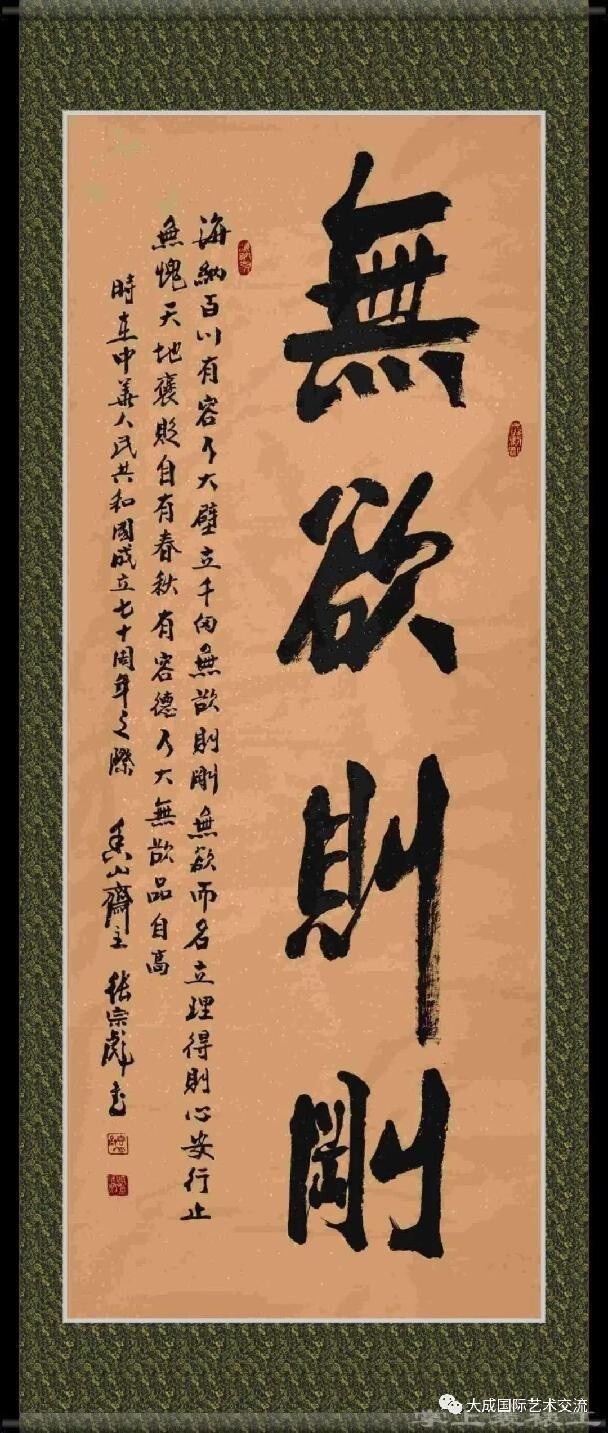 無欲則剛
海納百川有容乃大壁立千仞無欲則剛無欲而名立理得則心安行止
無愧天地褒貶自有春秋有容德乃大無欲品自高
時在中華人民共和國成立七十周年之際 香山齋主 張宗彪書
大成国际艺术交流